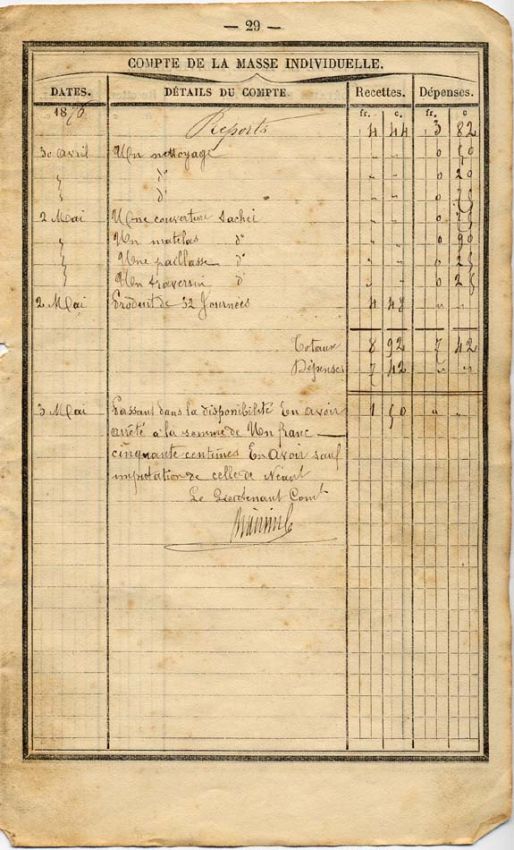 — 29 —
COMPTE DE LA MASSE INDIVIDUELLE.
DATES. DÉTAILS DU COMPTE. Recettes. Dépenses.
1876 fr. c. fr. c.
Reports 4 44 3 82
30 avril Un nettoyage " " 0 50
" d° " " 0 20
" d° " " 0 75
2 Mai Une couverture tachée " " 0 75
" Un matelas d° " " 0 90
" Une paillasse d° " " 0 25
" Un traversin d° " " 0 25
2 Mai Produit de 32 Journées 4 48 " "
Totaux 8 92 7 42
Dépenses 7 42 " "
3 Mai Passant dans la disponibilité En avoir 1 50 " "
arrêté à la somme de Un franc —
cinquante centimes En Avoir sauf
imputation de celle de Néant
Le Lieutenant Comt